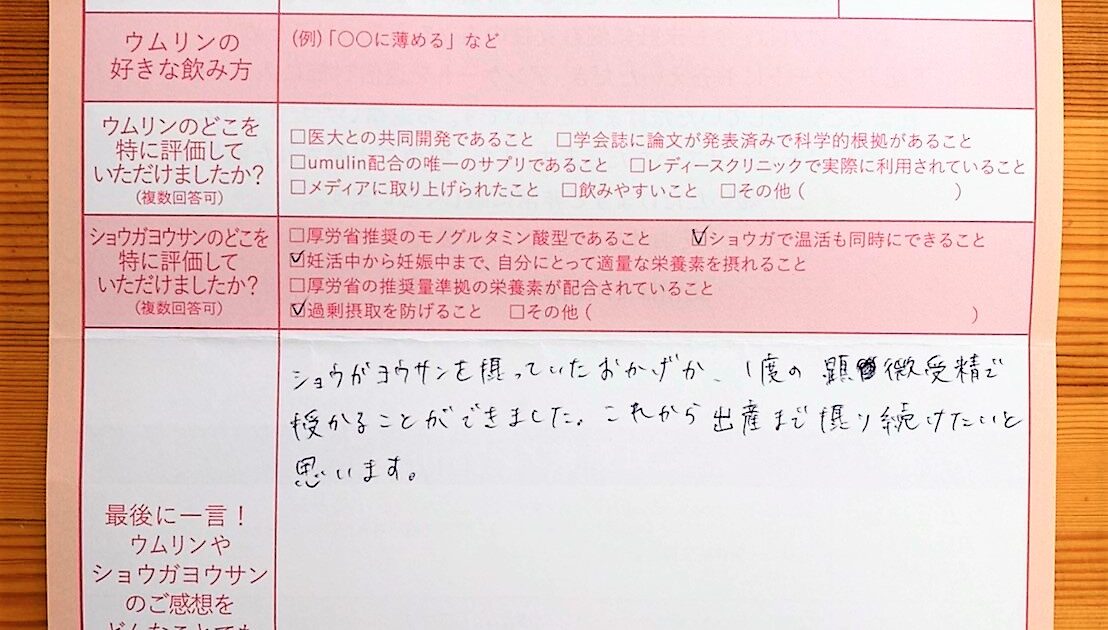 ウムリンの
好きな飲み方
(例)「〇〇に薄める」など
ウムリンのどこを
特に評価して
いただけましたか?
(複数回答可)
□医大との共同開発であること □学会誌に論文が発表済みで科学的根拠があること
□umulin配合の唯一のサプリであること □レディースクリニックで実際に利用されていること
□メディアに取り上げられたこと □飲みやすいこと □その他( )
ショウガヨウサンのどこを
特に評価して
いただけましたか?
(複数回答可)
□厚労省推奨のモノグルタミン酸型であること ☑ショウガで温活も同時にできること
☑妊活中から妊娠中まで、自分にとって適量な栄養素を摂れること
□厚労省の推奨量準拠の栄養素が配合されていること
☑過剰摂取を防げること □その他( )
ショウガヨウサンを摂っていたおかげか、1度の顕微受精で
授かることができました。これから出産まで摂り続けたいと
思います。
最後に一言!
ウムリンや
ショウガヨウサン
のご感想を
どんなことでも